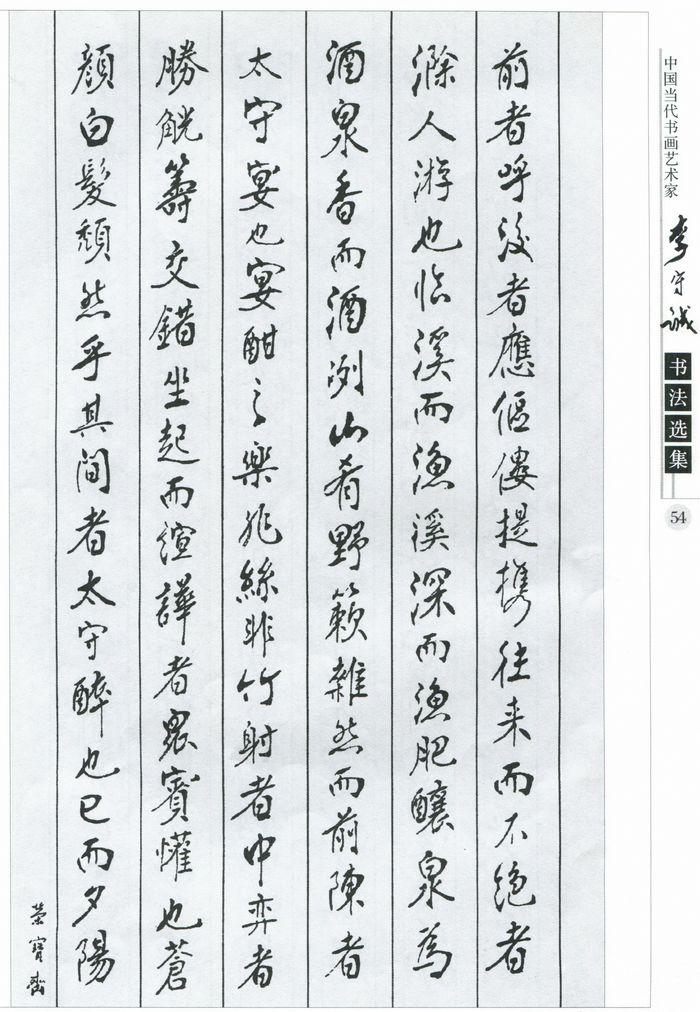 前者呼後者應傴僂提携往来而不絶者
滁人游也临溪而漁溪深而漁肥釀泉為
酒泉香而酒洌山肴野簌雜然而前陳者
太守宴也宴酣之樂非絲非竹射者中弈者
勝觥籌交錯坐起而諠譁者眾賓懽也蒼
顔白髮頹然乎其间者太守醉也已而夕陽
榮寶齋
中国当代书画艺术家
李守诚
书法选集
54